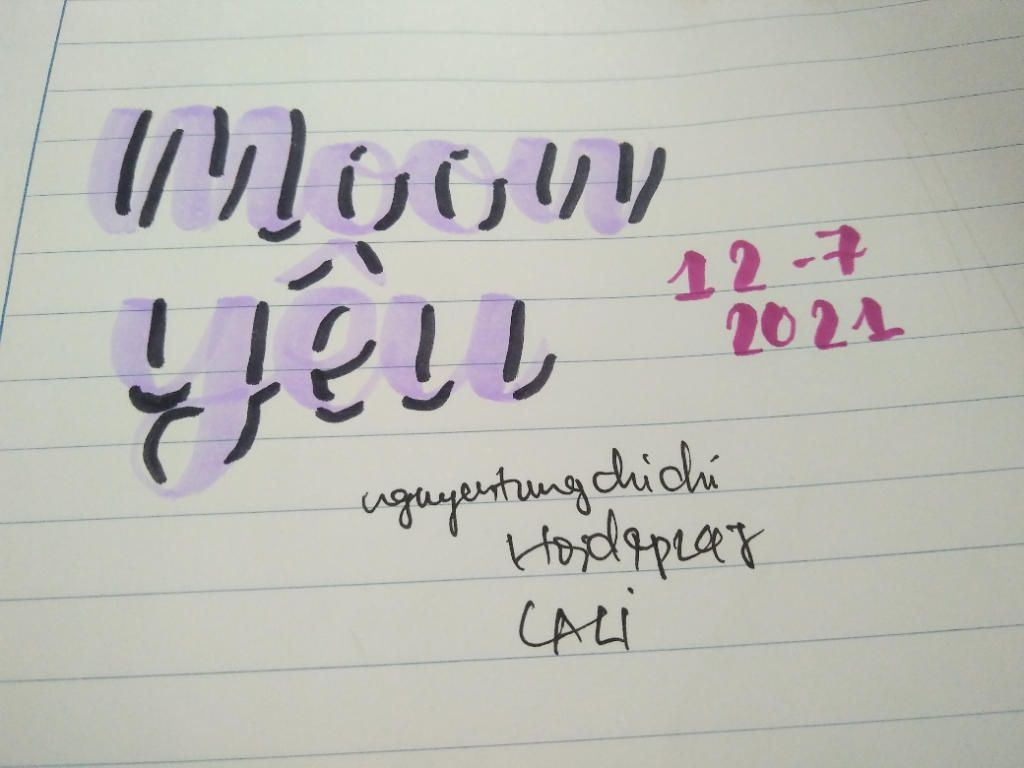 Moon
yêu
12-7
2021
nguyentungchichi
CALI